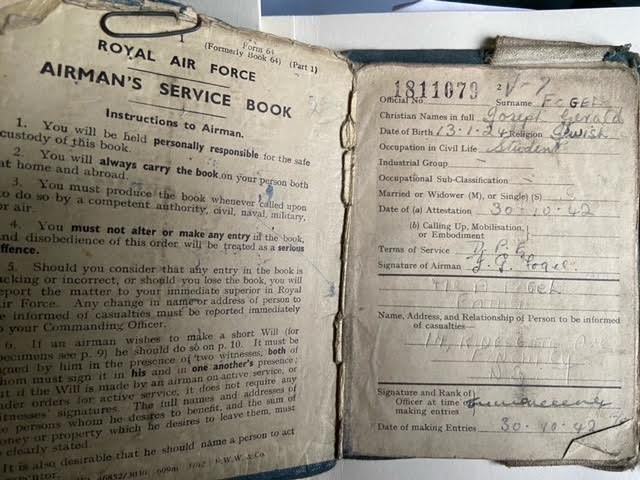 Form 64
(Formerly Book 64) (Part 1)
ROYAL AIR FORCE
AIRMAN'S SERVICE BOOK
Instructions to Airman.
1. You will be held personally responsible for the safe
custody of this book.
2. You will always carry the book on your person both
at home and abroad.
3. You must produce the book whenever called upon
to do so by a competent authority, civil, naval, military,
or air.
4. You must not alter or make any entry in the book,
and disobedience of this order will be treated as a serious
offence.
5. Should you consider that any entry in the book is
lacking or incorrect, or should you lose the book, you will
report the matter to your immediate superior in Royal
Air Force. Any change in name or address of person to
be informed of casualties must be reported immediately
to your Commanding Officer.
6. If an airman wishes to make a short Will (for
specimens see p. 9) he should do so on p. 10. It must be
signed by him in the presence of two witnesses, both of
whom must sign it in his and in one another's presence;
but if the Will is made by an airman on active service, or
under orders for active service, it does not require any
witnesses' signatures. The full names and addresses of
the persons whom he desires to benefit, and the sum of
money or property which he desires to leave them, must
be clearly stated.
It is also desirable that he should name a person to act
1811079
Official No. Surname FOGEL
Christian Names in full Joseph Gerald
Date of Birth 13.1.24 Religion Jewish
Occupation in Civil Life Student
Industrial Group —
Occupational Sub-Classification —
Married or Widower (M), or Single (S) S
Date of (a) Attestation 30.10.42
(b) Calling Up, Mobilisation,
or Embodiment
Terms of Service D.P.E.
Signature of Airman J. G. Fogel
FOGEL
FATHER
Name, Address, and Relationship of Person to be informed
of casualties—
Signature and Rank of
Officer at time of
making entries
Date of making Entries 30.10.42